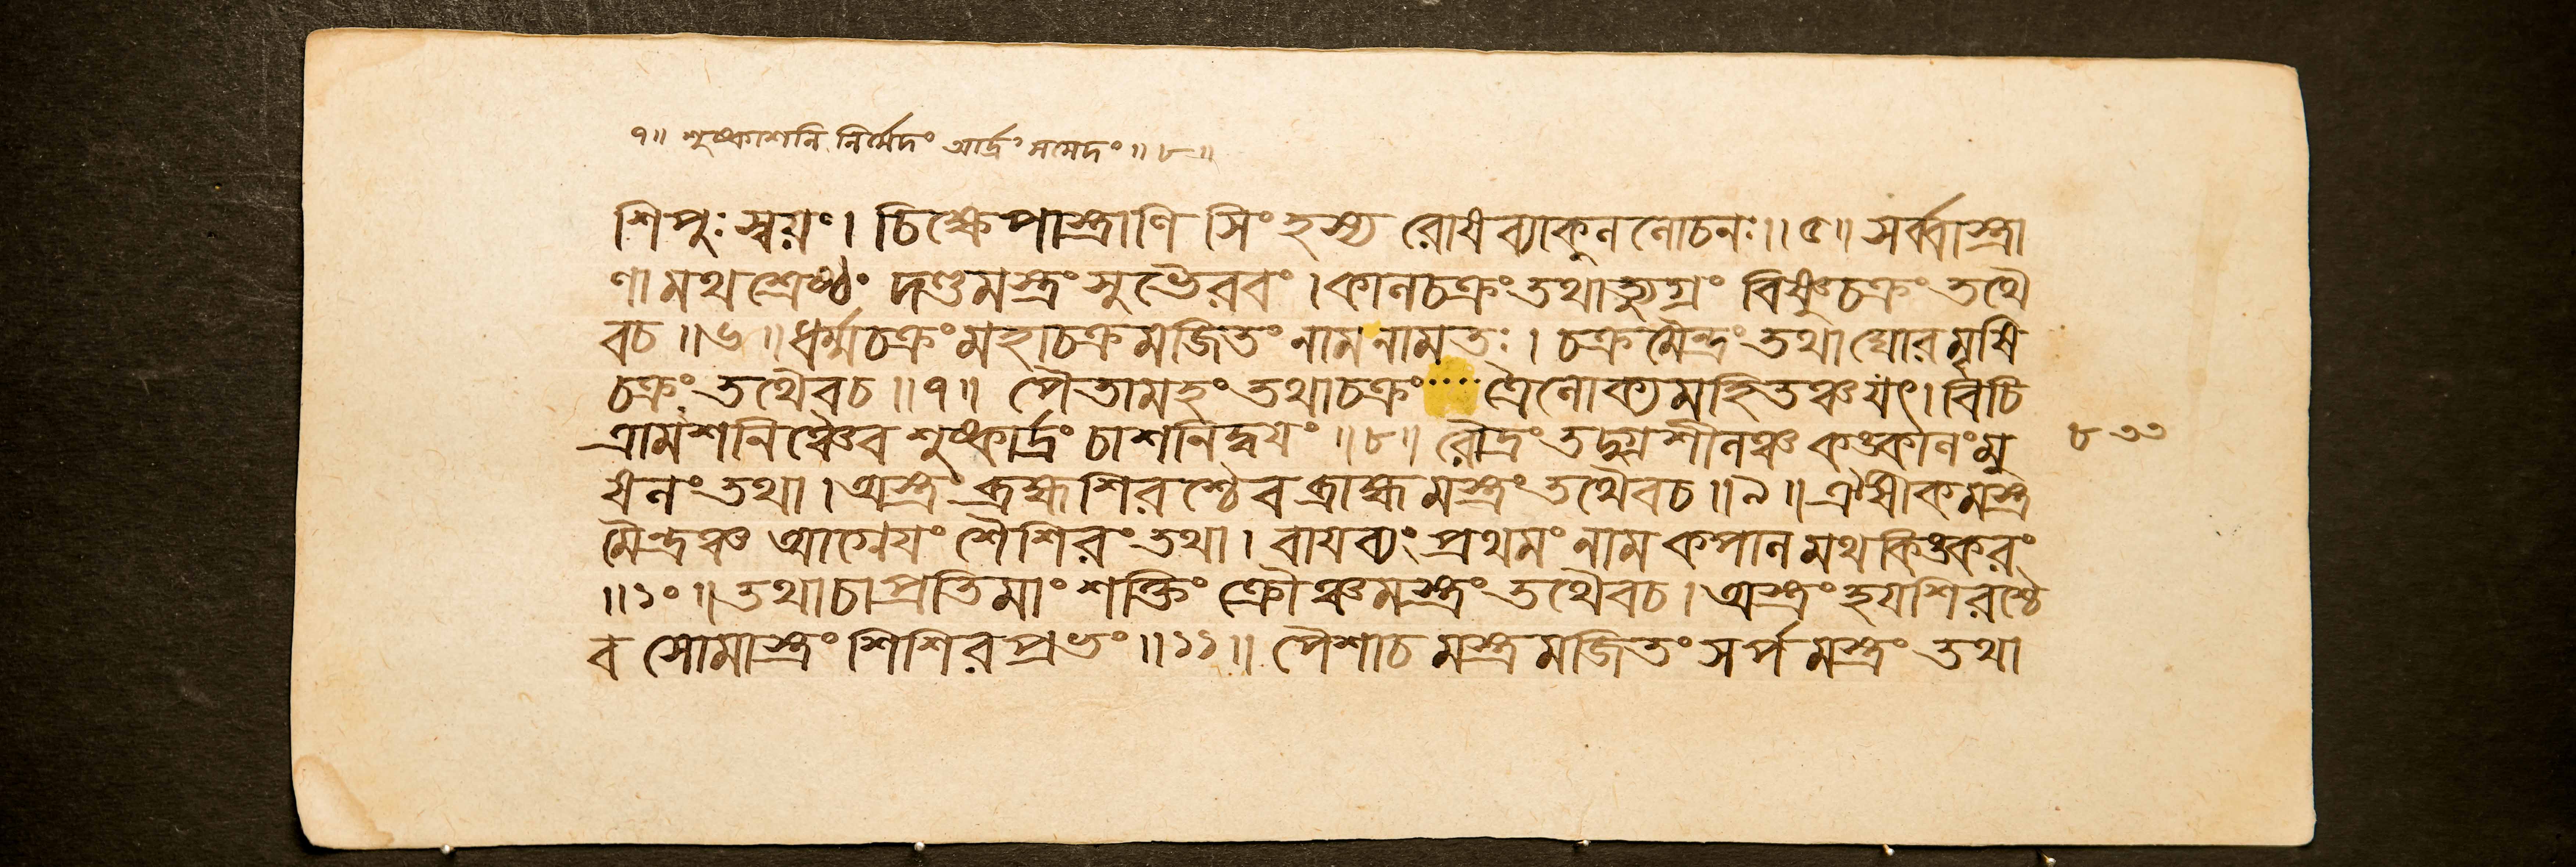 ৭॥ শুষ্কাশনি নির্মেদং আর্দ্রং সমেদং ॥৮॥
শিপুঃ স্বয়ং। চিক্ষেপাস্ত্রাণি সিংহস্য রোষব্যাকুল লোচনঃ॥৫॥ সর্ব্বাস্ত্রা
ণামথ শ্রেষ্ঠং দণ্ডমস্ত্রং সুভৈরবং। কালচক্রং তথাত্যুগ্রং বিষ্ণুচক্রং তথৈ
বচ॥৬॥ ধর্ম্মচক্রং মহাচক্রমজিতং নাম নামতঃ। চক্রমৈন্দ্রং তথা ঘোরমৃষি
চক্রং তথৈবচ॥৭॥ পৈতামহং তথাচক্রং .... ত্রৈলোক্যমহিতঞ্চযৎ। বিচি
ত্রামশনিঞ্চৈব শুষ্কার্দ্রং চাশনিদ্বয়ং॥৮॥ রৌদ্রং তদুগ্রশীলঞ্চ কঙ্কালং মু
ষলং তথা। অস্ত্রং ব্রহ্মশিরশ্চৈব ব্রাহ্মমস্ত্রং তথৈবচ॥৯॥ ঐষীকমস্ত্র
মৈন্দ্রঞ্চ আগ্নেয়ং শৈশিরং তথা। বায়ব্যং প্রথমং নাম কপালমথ কিঙ্করং
॥১০॥ তথাচাপ্রতিমাং শক্তিং ক্রৌঞ্চমস্ত্রং তথৈবচ। অস্ত্রং হয়শিরশ্চৈ
ব সোমাস্ত্রং শিশিরপ্রভং॥১১॥ পৈশাচমস্ত্রমজিতং সর্পমস্ত্রং তথা